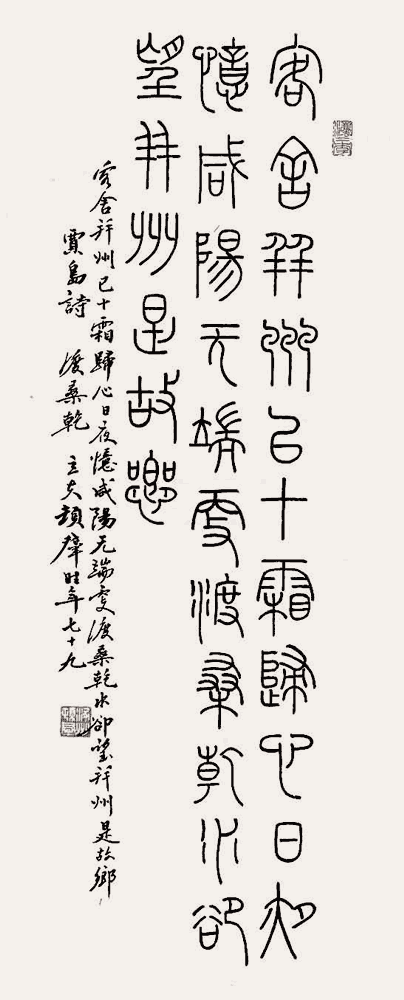 客舍并州已十霜歸心日夜
憶咸陽无端更渡桑乾水卻
望并州是故鄉
客舍并州已十霜歸心日夜憶咸陽无端更渡桑乾水卻望并州是故鄉
賈島詩 渡桑乾 時年七十九